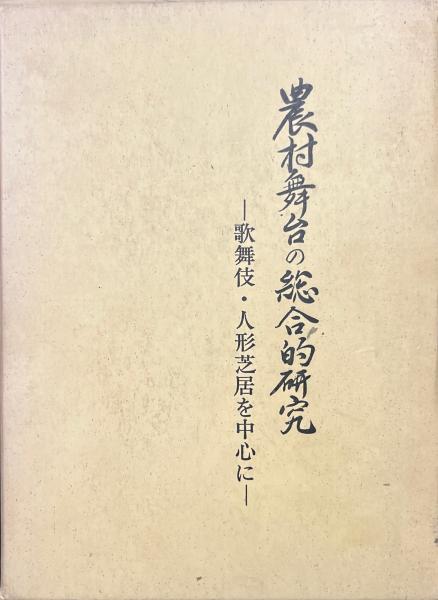 農村舞台の総合的研究
—歌舞伎・人形芝居を中心に—